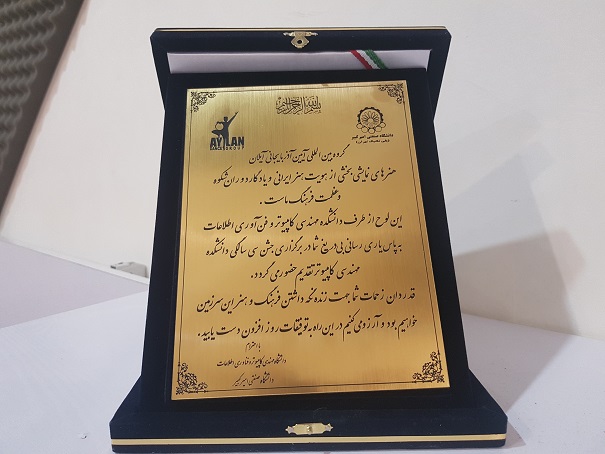 بسم الله الرحمن الرحیم
AYLAN
DANCE GROUP
دانشگاه صنعتی امیرکبیر
(پلی تکنیک تهران)
گروه بین المللی آیین آذربایجانی آیلان
هنرهای نمایشی بخشی از هویت هنر ایرانی و یادگار دوران شکوه
و عظمت فرهنگ ماست .
این لوح از طرف دانشکده مهندسی کامپیوتر و فن آوری اطلاعات
به پاس یاری رسانی بی دریغ شما در برگزاری جشن سی سالگی دانشکده
مهندسی کامپیوتر تقدیم حضور می گردد .
قدردان زحمات شما جهت زنده نگه داشتن فرهنگ و هنر این سرزمین
خواهیم بود و آرزو می کنیم در این راه به توفیقات روز افزون دست یابید .
با احترام
دانشکده مهندسی کامپیوتر و فناوری اطلاعات
دانشگاه صنعتی امیرکبیر